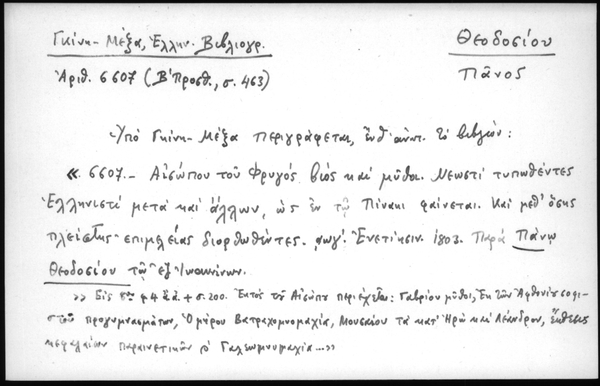 Γκίνη - Μέξα, Ἑλλην. Βιβλιογρ.
Θεοδοσίου
Ἀριθ. 6607 (Β΄ Προσθ., σ. 463)
Πᾶνος
Ὑπὸ Γκίνη - Μέξα περιγράφεται, τὸ βιβλίον:
«6607.- Αἰσώπου τοῦ Φρυγός βιός καὶ μῦθοι. Νεωστὶ τυπωθέντες
Ἑλληνιστί μετὰ καὶ ἄλλων, ὡς ἐν τῷ Πίνακι φαίνεται. Καὶ μεθ' ὅσης
πλείστης ἐπιμελείας διορθωθέντες. ͵αωγ΄. Ἐνετίησιν. 1803. Παρὰ Πάνῳ
Θεοδοσίου τῷ ἐξ Ἰωαννίνων.
» Εἰς 8ον φ. 4 ἄ.ἀ. + σ. 200. Ἐκτὸς τοῦ Αἰσώπου περιέχεται: Γαβρίου μῦθοι, Ἐκ τῶν Ἀφθονίου σοφι-
στοῦ προγυμνασμάτων, Ὁμήρου Βατραχομυομαχία, Μουσαίου τὰ κατ' Ἡρὼ καὶ Λέανδρον, ἔκθεσις
κεφαλαίων παραινετικῶν Γαλεωμυομαχία...»